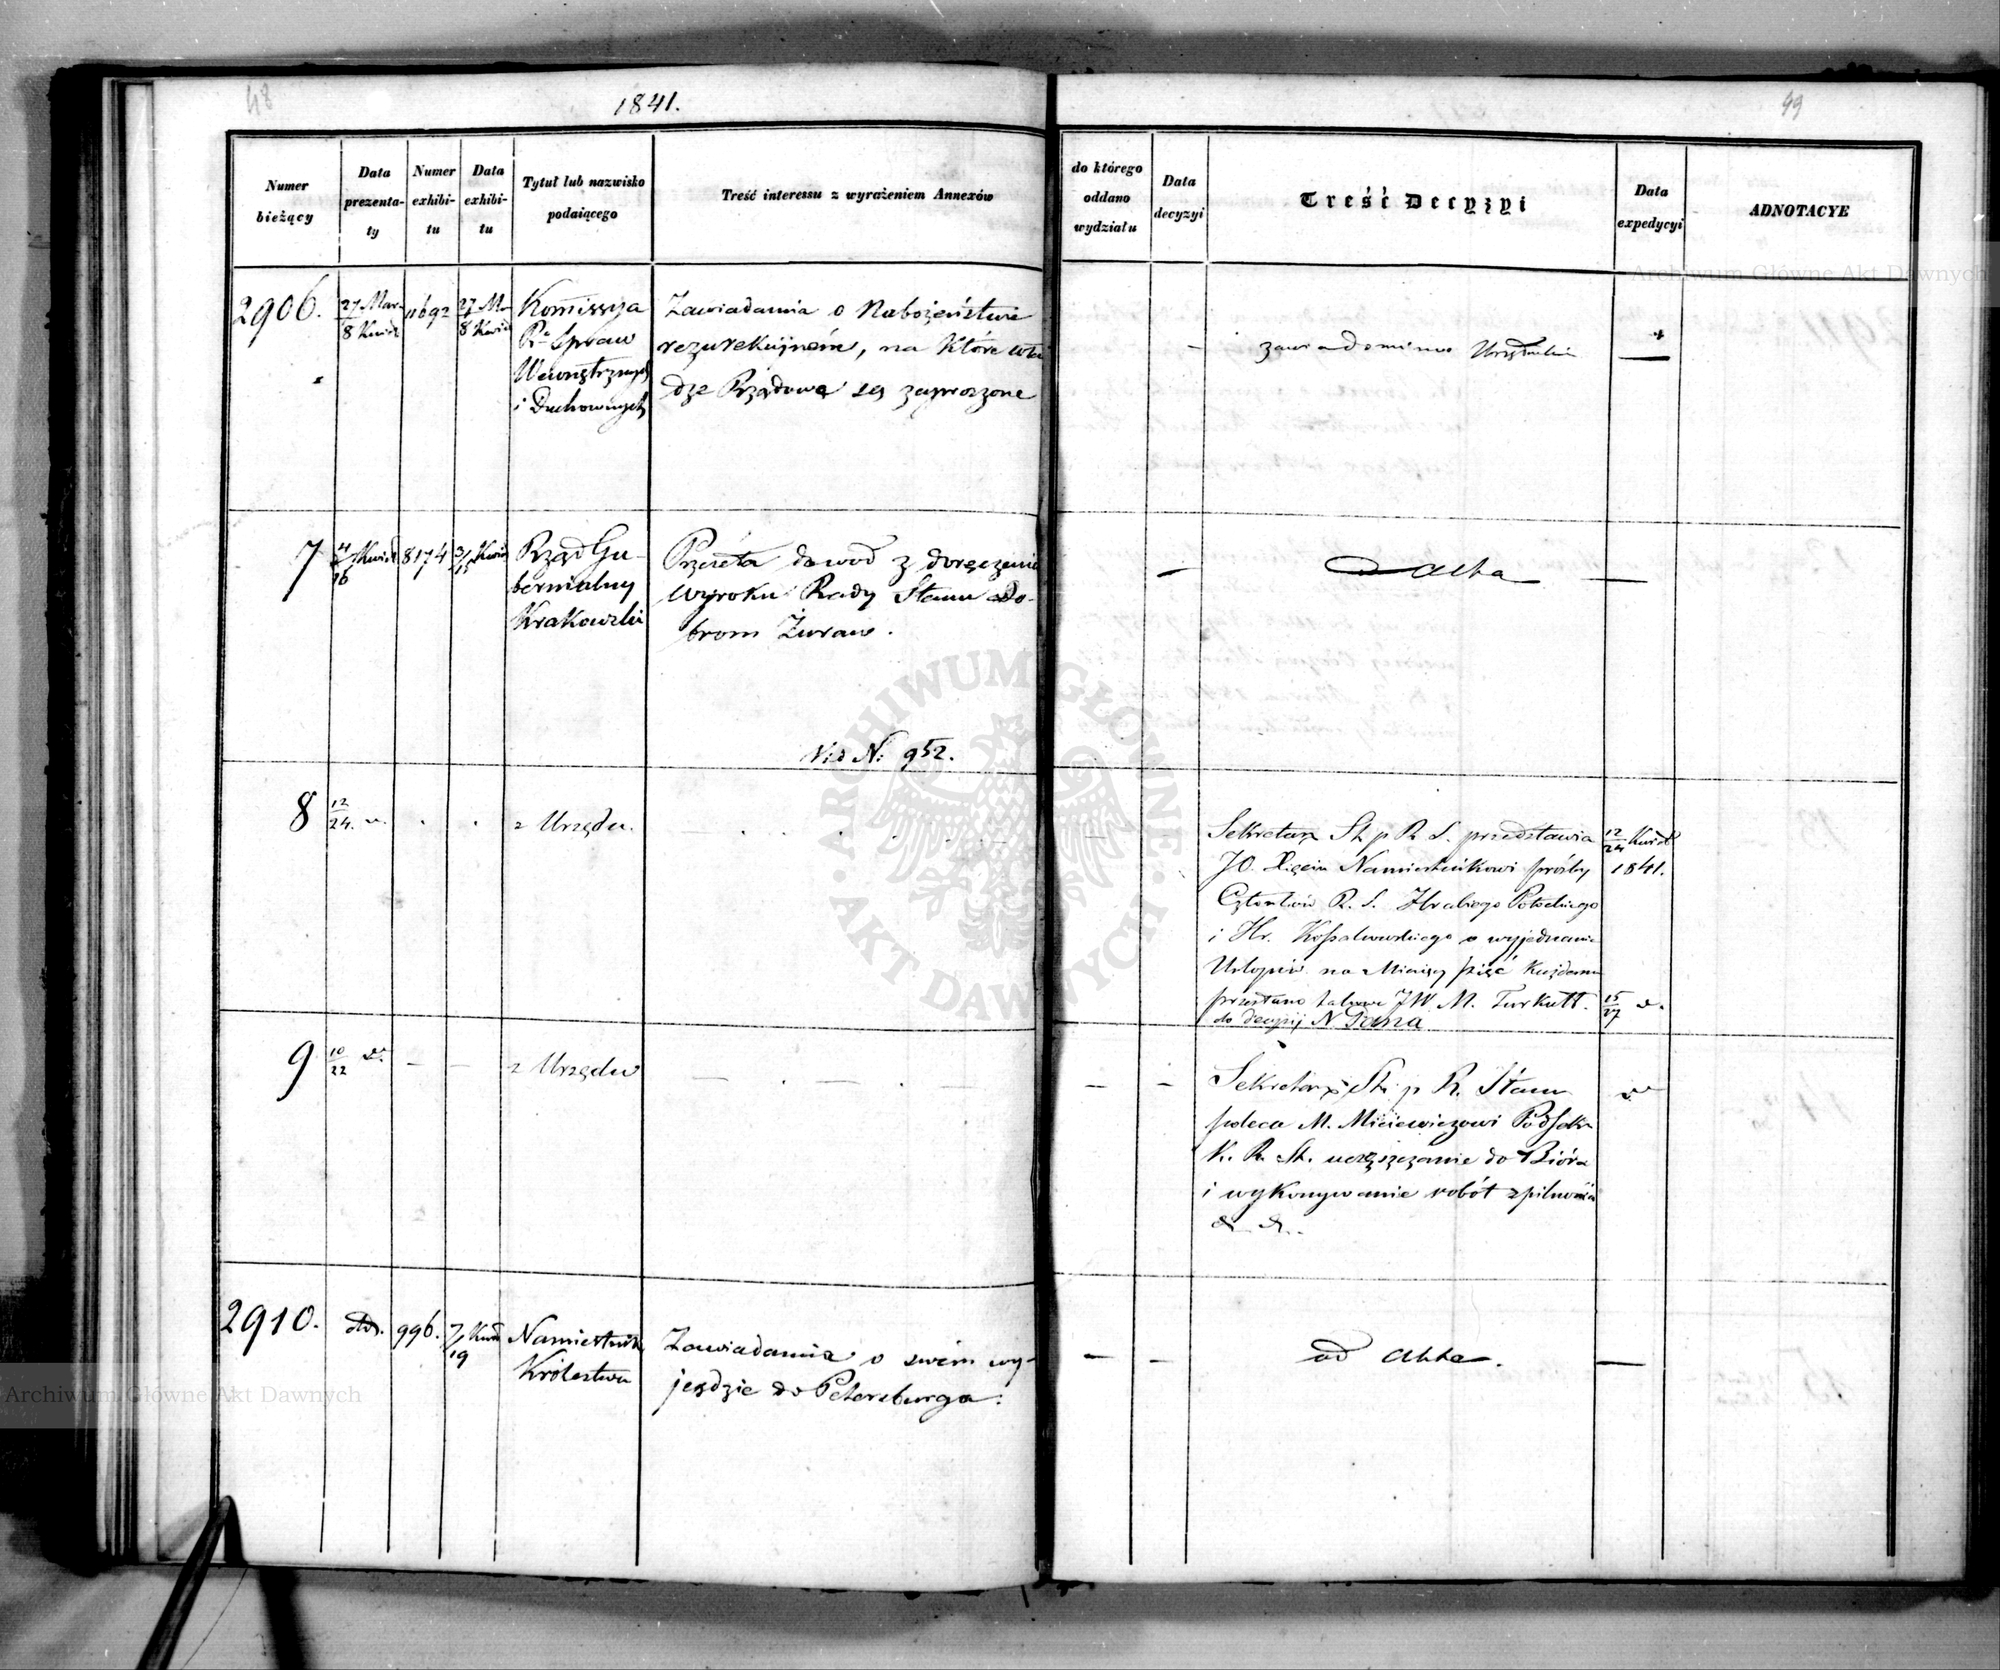 48
1841.
99
Numer bieżący
Data prezentaty
Numer exhibitu
Data exhibitu
Tytuł lub nazwisko podaiącego
Treść interessu z wyrażeniem Annexów
do którego oddano wydziału
Data decyzyi
Treść Decyzyi
Data expedycyi
ADNOTACYE
2906.
27 Mar
8 Kwie
11692
27 M
8 Kwie
Komissya
R. Spraw
Wewnętrznych
i Duchownych
Zawiadamia o Nabożeństwie
rezurekcijném, na które wła
dze Rządowe są zaproszone
zawiadomiono
7
4/16 Kwie
8174
3/15 Kwie
Rząd Gu-
bernialny
Krakowski
Przesła dowód z doręczenia
wyroku Rady Stanu Do-
brom Żuraw.
Vid N: 952.
ad Akta
8
12/24.
z Urzędu.
Sekretarz St p R S. przedstawia
JO. Xięciu Namiestnikowi prośby
Członków R. S. Hrabiego Potockiego
i Hr. Kossakowskiego o wyjednanie
Urlopów na Miesięcy pięć każdemu
przesłano JW M. Turkułł.
do decyzij N Pana
12/24 Kwie
1841.
15/27 d.
9
10/22 d.
z Urzędu
Sekretarz St. p R. Stanu
poleca M. Miciewiczowi PodSekr
K. R. St. uczęszczanie do Bióra
i wykonywanie robót z pilnością
&. &.
2910.
dto.
996.
7/19 Kwie
Namiestnik
Królestwa
Zawiadamia o swém wy-
jeździe do Petersburga.
ad Akta.
Archiwum Główne Akt Dawnych
ARCHIWUM GŁÓWNE
AKT DAWNYCH
Archiwum Główne Akt Dawnych